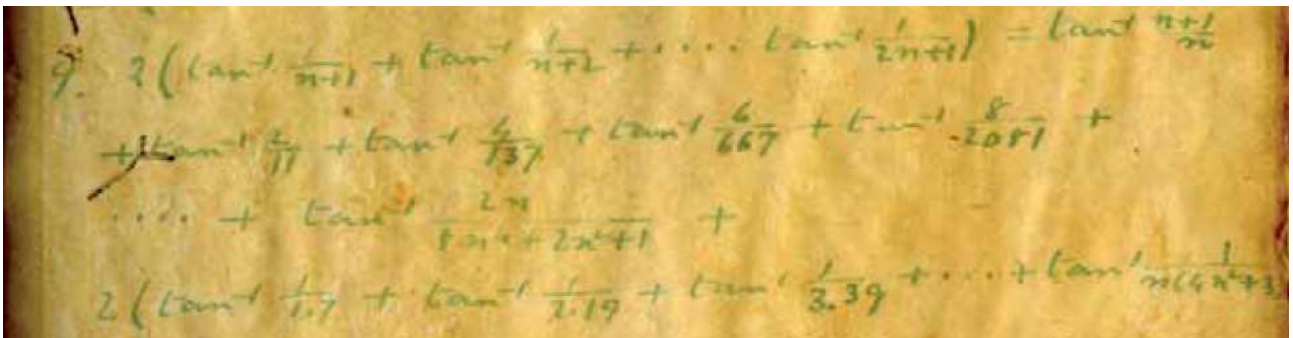 9. 2(tan⁻¹ 1/(n+1) + tan⁻¹ 1/(n+2) + .... tan⁻¹ 1/(2n+1)) = tan⁻¹ (n+1)/n
+ tan⁻¹ 2/11 + tan⁻¹ 4/137 + tan⁻¹ 6/667 + tan⁻¹ 8/2081 +
.... + tan⁻¹ 2n/(8n⁴+2n²+1) +
2(tan⁻¹ 1/1.7 + tan⁻¹ 1/2.19 + tan⁻¹ 1/3.39 + .... + tan⁻¹ 1/n(4n²+3